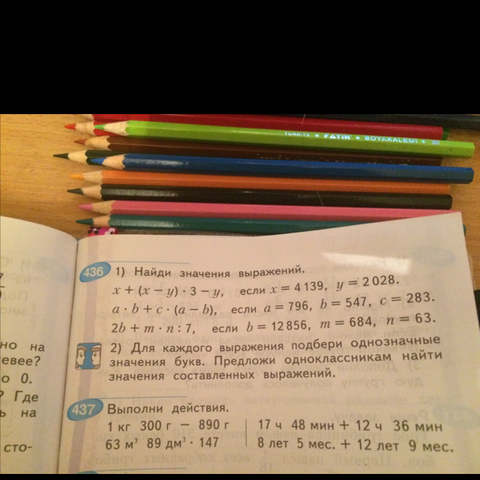 TÜRKİYE ★ FATİH ★ BOYAKALEMİ ★
436 1) Найди значения выражений.
x + (x − y) · 3 − y, если x = 4 139, y = 2 028.
a · b + c · (a − b), если a = 796, b = 547, c = 283.
2b + m · n : 7, если b = 12 856, m = 684, n = 63.
2) Для каждого выражения подбери однозначные
значения букв. Предложи одноклассникам найти
значения составленных выражений.
437 Выполни действия.
1 кг 300 г − 890 г
63 м³ 89 дм³ · 147
17 ч 48 мин + 12 ч 36 мин
8 лет 5 мес. + 12 лет 9 мес.
но на
евее?
о 0.
? Где
ь на
сто-